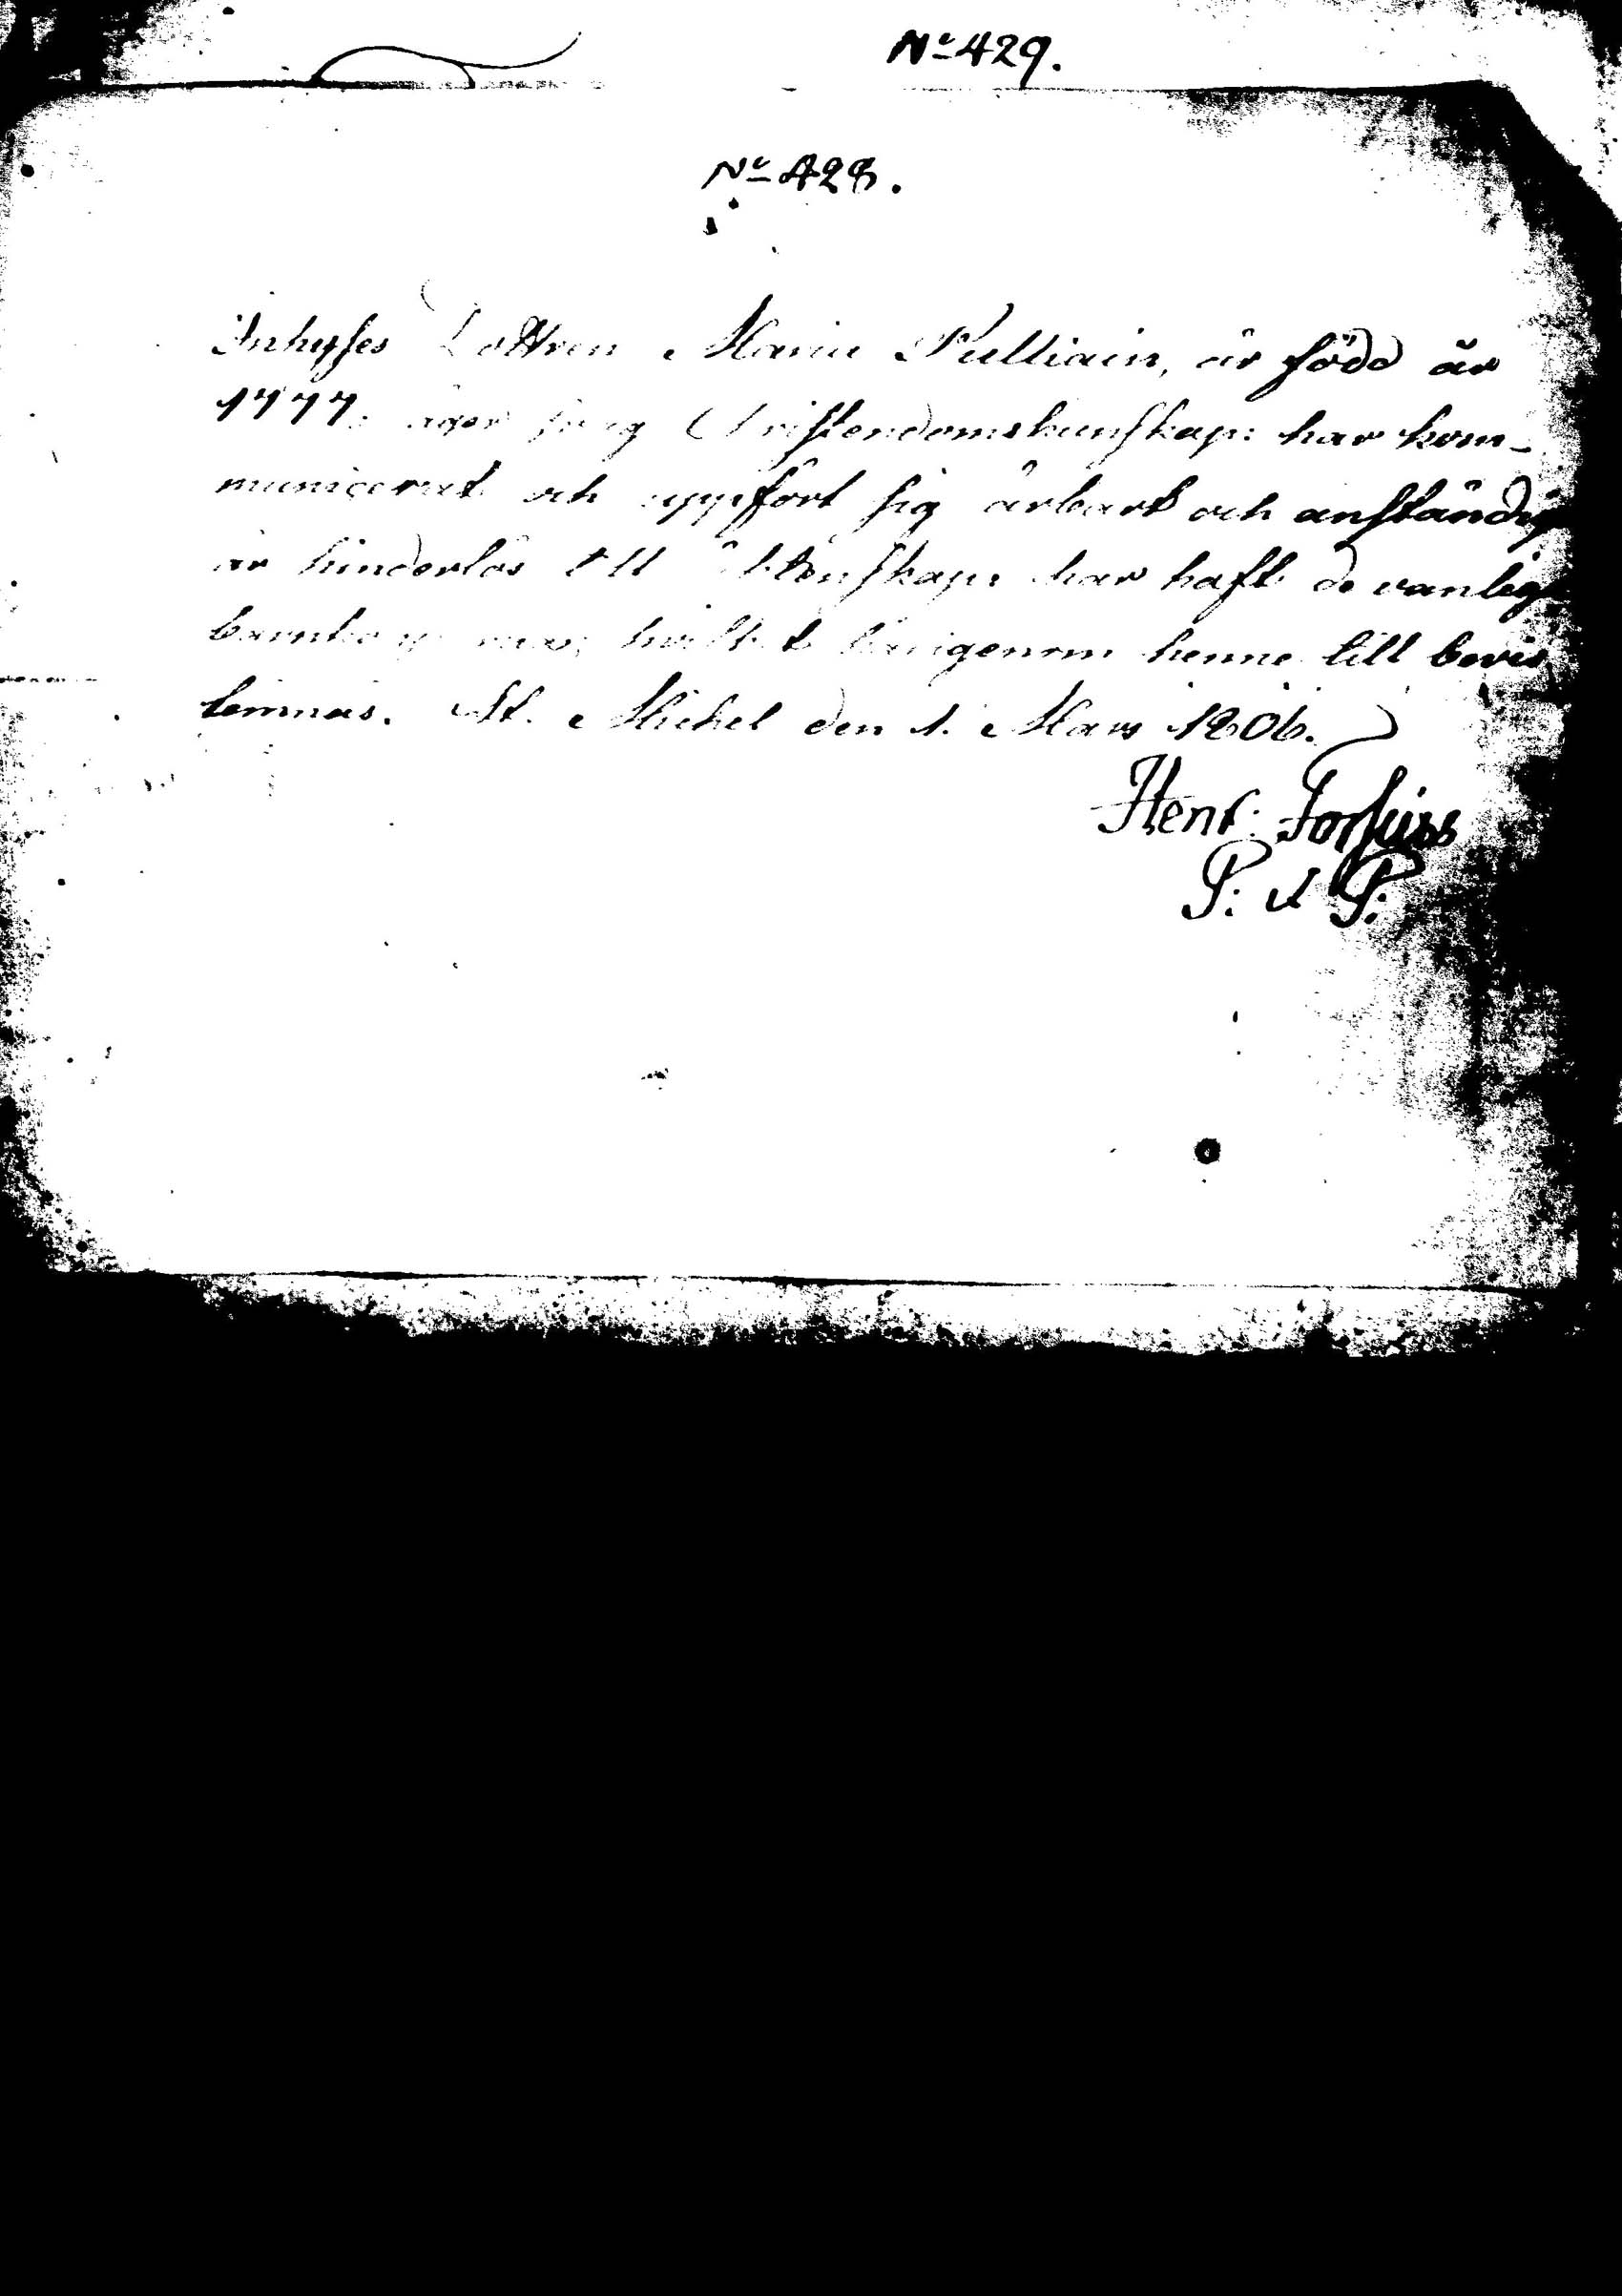 No 429.
No 428.
Inhyses Dottren Maria Pulliain, är född år
1777. äger Christendomskunskap: har kom-
municerat och uppfört sig ärbart och anständig
är hinderlös till äktenskap: har haft de vanlige
hvilket härigenom henne till bevis
lemnas. St. Michel den 1. Mars 1806.
Henr: Forsius
P: et P: